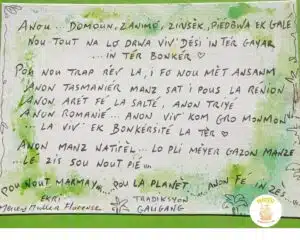 ANOU... DOMOUN, ZANIMO, ZINSÈK, PIEDBWA EK GALE
NOU TOUT NA LO DRWA VIV' DESI IN TÈR GAYAR
... IN TÈR BONKÈR ♡
POU NOU TRAP RÈV LA, I FO NOU MÈT ANSANM
ANON TASMANIÈR MANZ SAT I POUS LA RENION
ANON ARÈT FÉ LA SALTÉ, ANON TRIYE
ANON ROMANIÉ... ANON VIV' KOM GRO MONMON
LA VIV' EK BONKÈRSITÉ LA TÈR ♡
ANON MANZ NATIREL... LO PLI MÉYER GAZON MANZE
... LÉ ZIS SOU NOUT PIÉ...
POU NOUT MARMAY... POU LA PLANET... ANON FÉ IN ZÈS...
EKRI TRADIKSYON
Florence GALIGANG